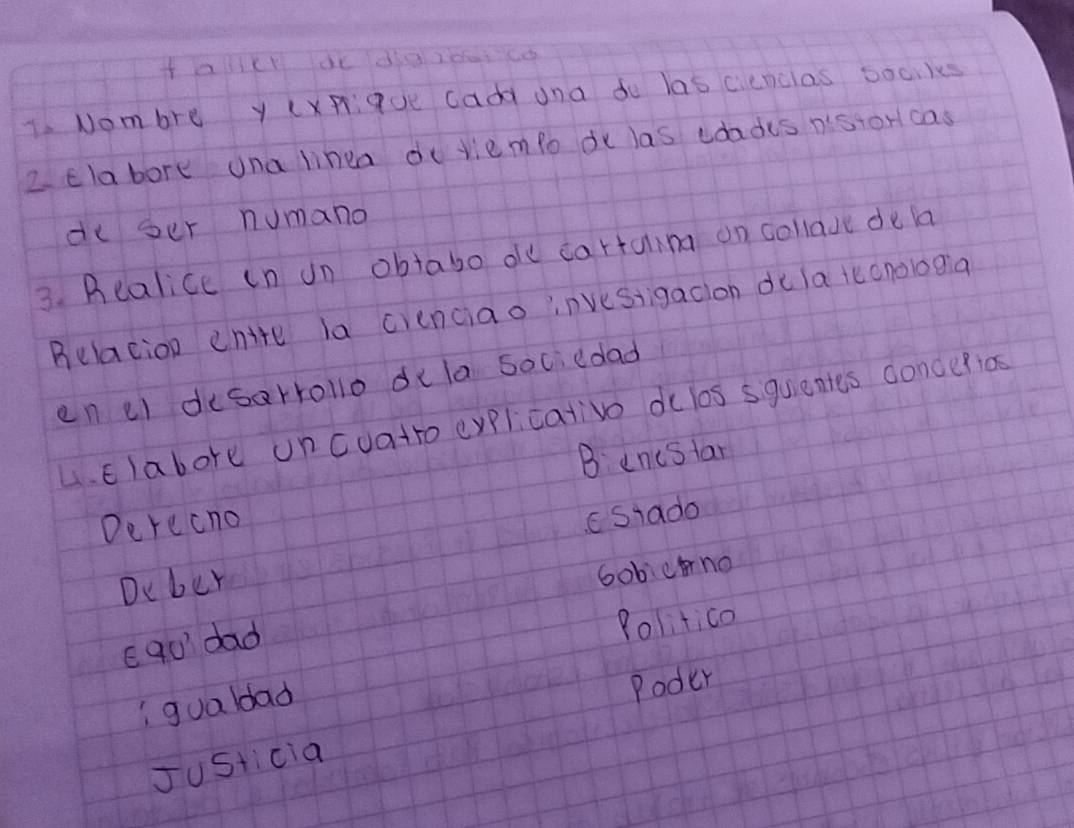 taller de diagnostico
1. Nombre y explique cada una de las ciencias sociales
2. Elabore una linea de tiempo de las edades historicas
de ser humano
3. Realice en un obtabo de cartulina un collave de la
Relacion entre la ciencia o investigacion de la tecnologia
en el desarrollo de la sociedad
4. Elabore un cuatro explicativo de los siguientes conceptos
Derecho Bienestar
Deber Estado
Equidad Gobierno
igualdad Politico
Justicia Poder